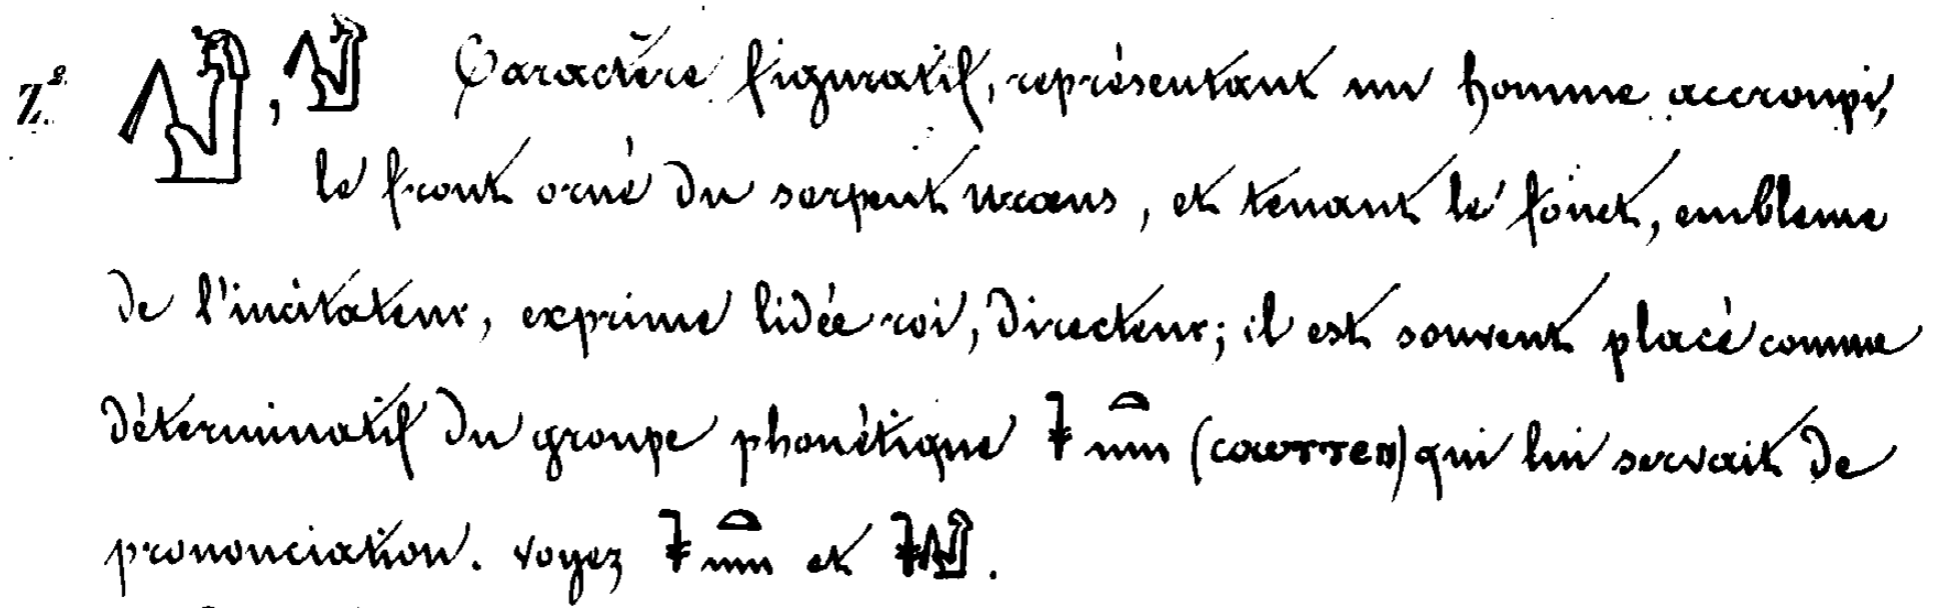 Z². 𓀲, 𓀲 Caractère figuratif, représentant un homme accroupi,
le front orné du serpent uræus, et tenant le fouet, embleme
de l'incitateur, exprime lidée roi, directeur; il est souvent placé comme
déterminatif du groupe phonétique 𓇓𓏏𓈖 (ⲥⲟⲩⲧⲧⲉⲛ) qui lui servait de
prononciation. voyez 𓇓𓏏𓈖 et